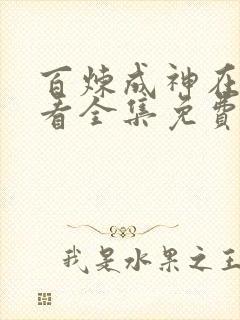 百炼成神在
看全集免費
我是水果之王